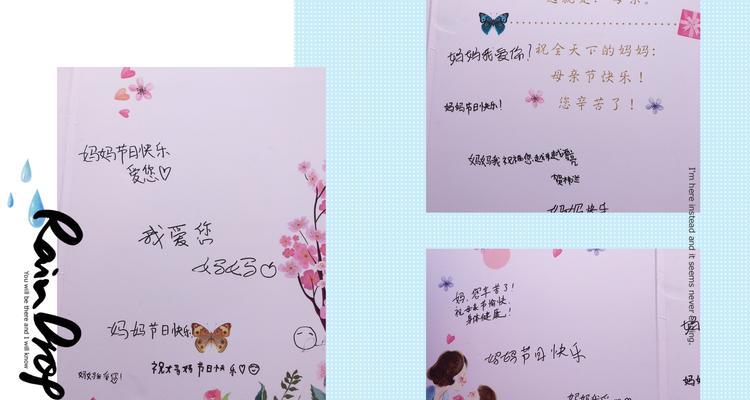 妈妈节日快乐
爱您♡
我爱您
妈妈
妈妈节日快乐
祝妈妈节日快乐♡
妈妈我爱您!
Rain Drop
You will be there and I will know
妈妈我爱你!
祝全天下的妈妈:
母亲节快乐!
您辛苦了!
妈妈节日快乐!
妈妈我祝福您越来越漂亮
妈妈快乐
妈,您辛苦了!
祝母亲节愉快,
身体健康!
妈妈节日快乐
妈妈我爱
妈
妈
I'm here instead and it seems never